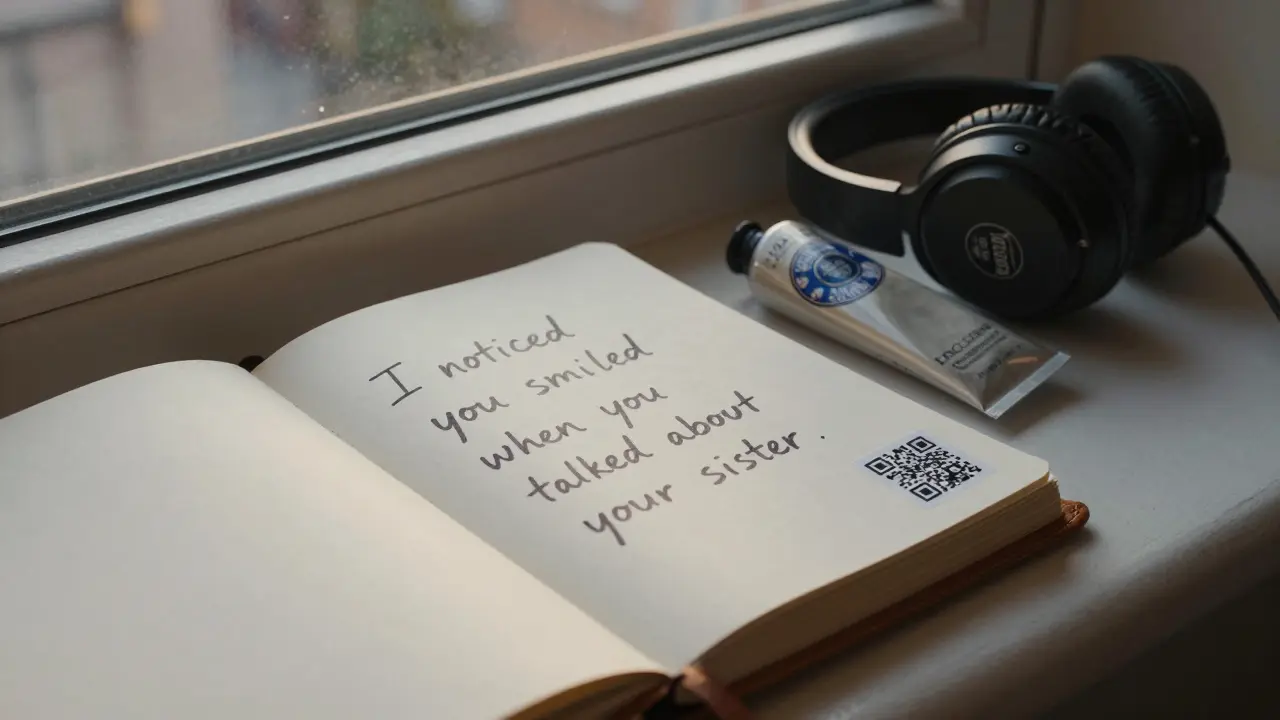 I noticed
you smiled
when you
talked about
your sister.